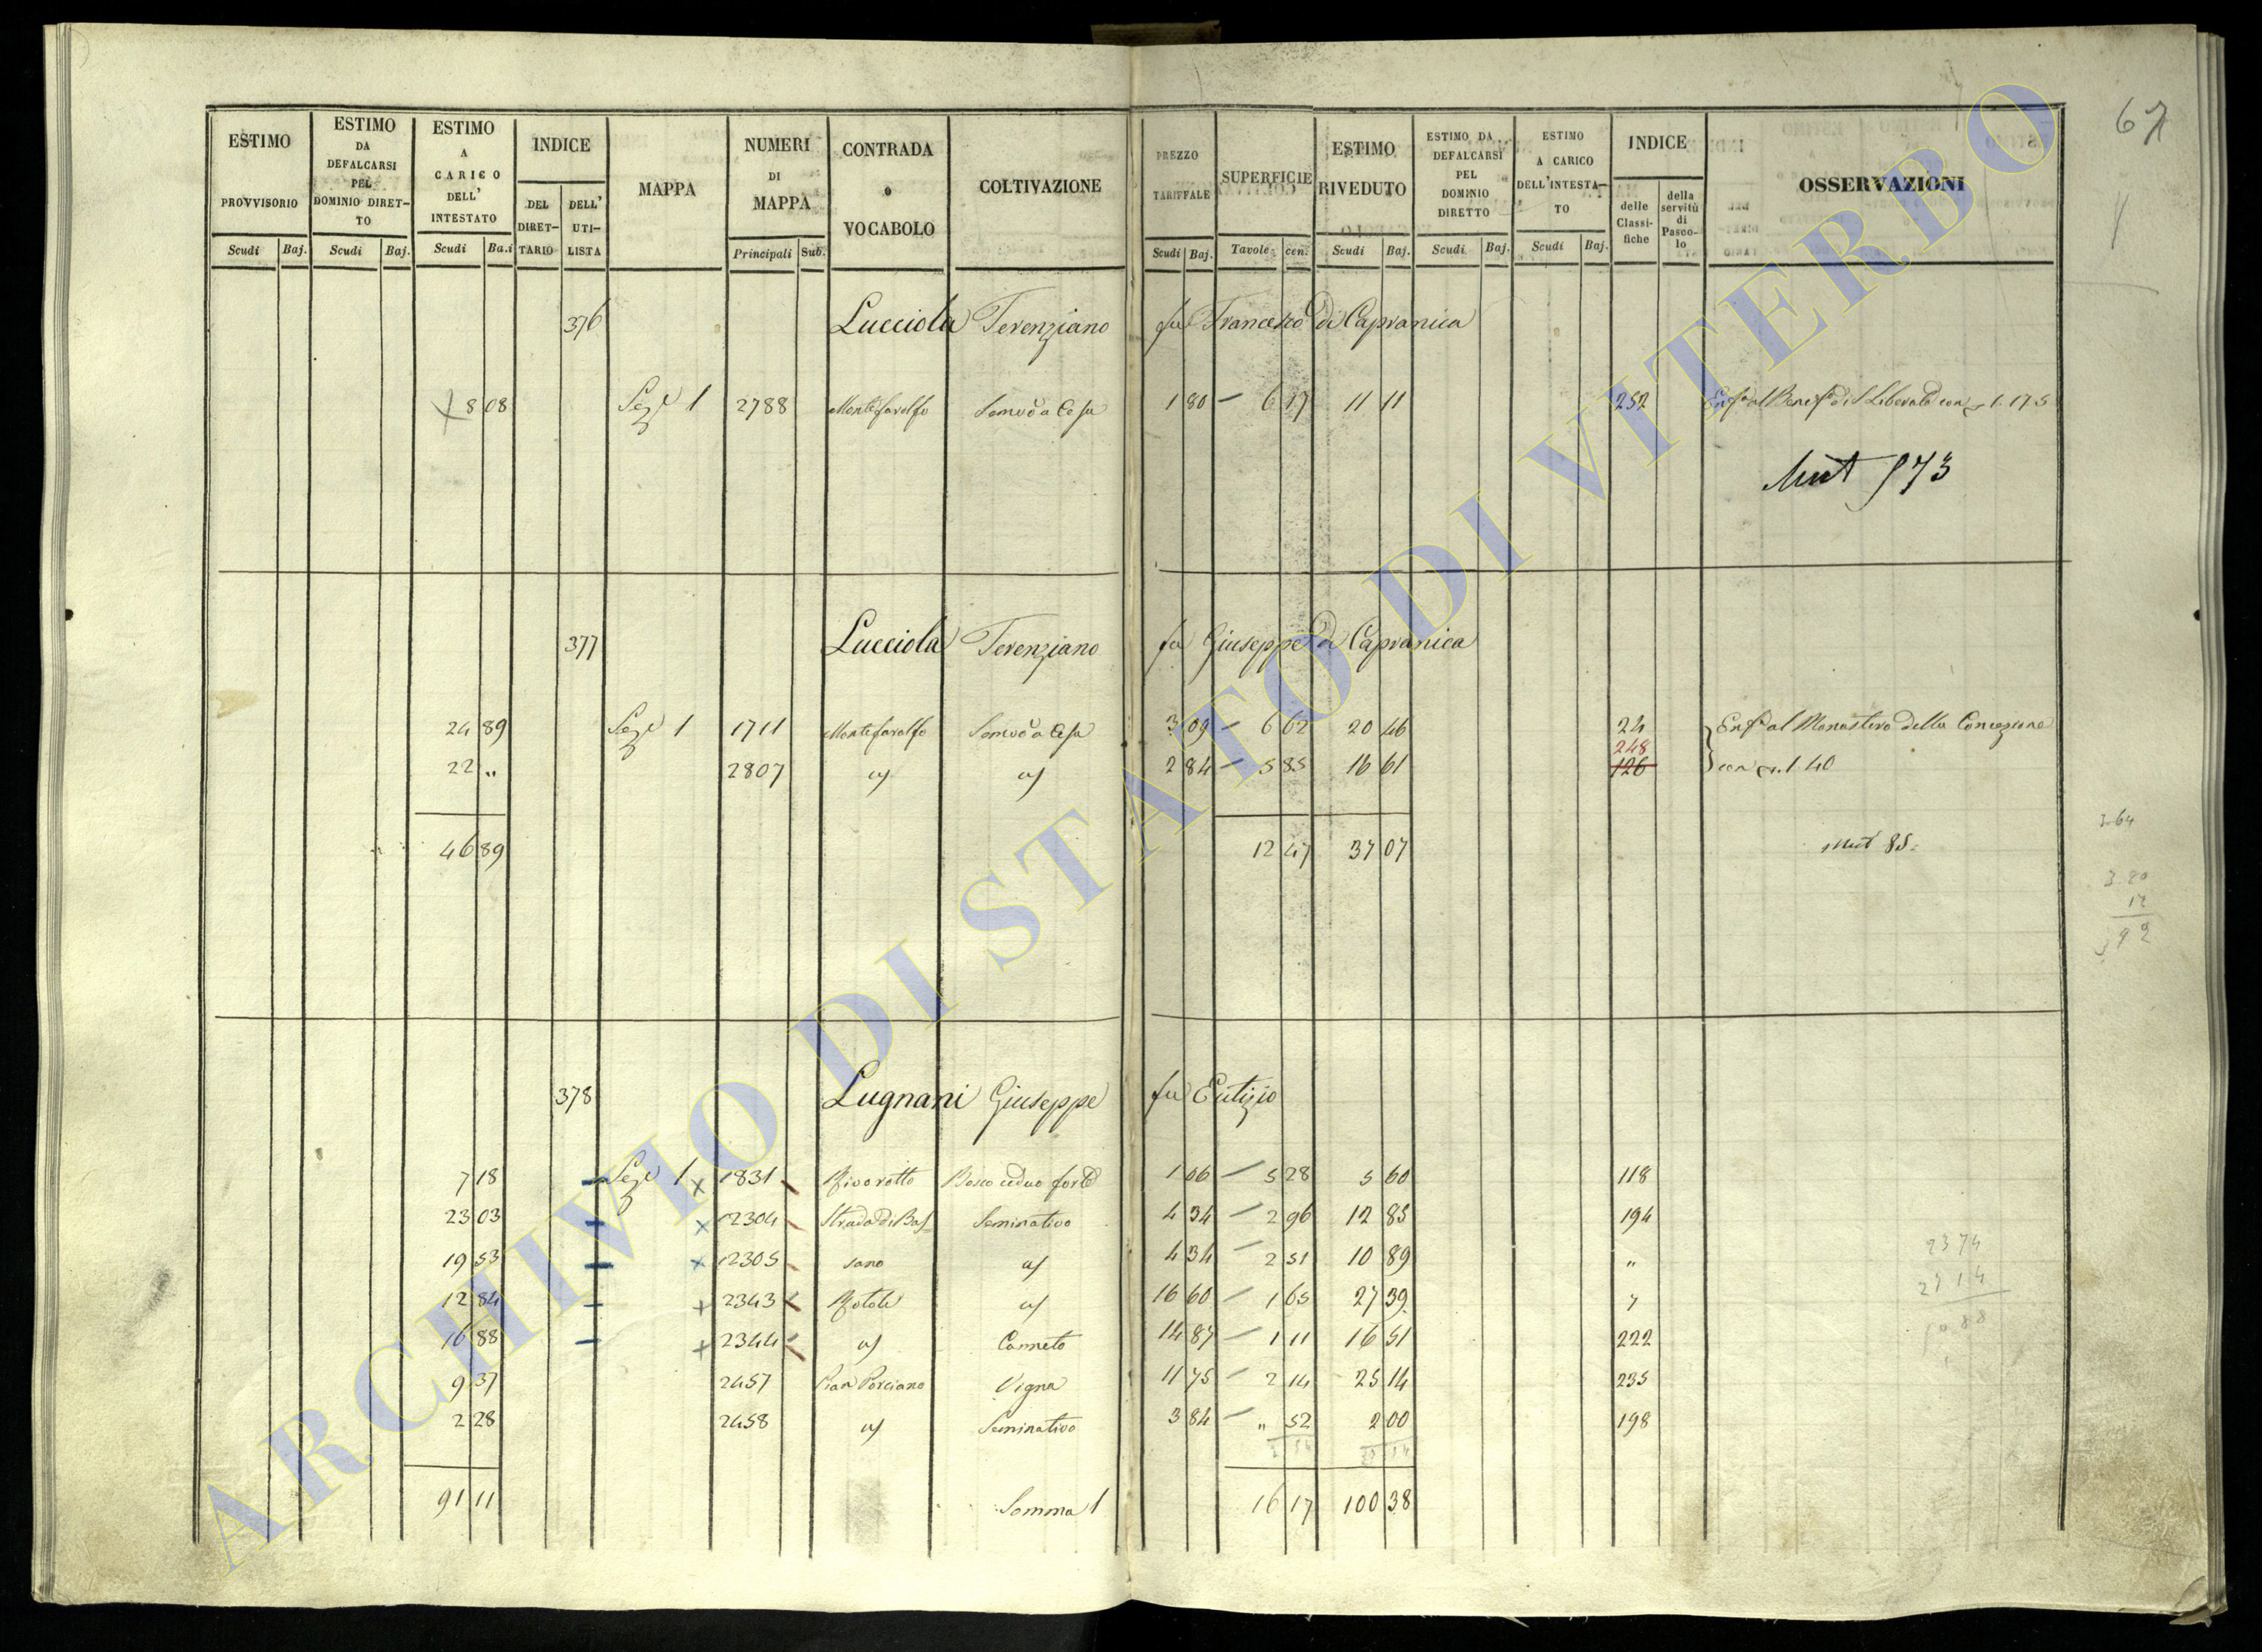 67
ESTIMO PROVVISORIO | ESTIMO DA DEFALCARSI PEL DOMINIO DIRET-TO | ESTIMO A CARICO DELL' INTESTATO | INDICE | MAPPA | NUMERI DI MAPPA | CONTRADA o VOCABOLO | COLTIVAZIONE | PREZZO TARIFFALE | SUPERFICIE | ESTIMO RIVEDUTO | ESTIMO DA DEFALCARSI PEL DOMINIO DIRETTO | ESTIMO A CARICO DELL'INTESTA-TO | INDICE | OSSERVAZIONI
DEL DIRET-TARIO | DELL' UTI-LISTA | delle Classi-fiche | della servitù di Pasco-lo
Scudi | Baj. | Scudi | Baj. | Scudi | Ba.i | Principali | Sub. | Scudi | Baj. | Tavole | cen. | Scudi | Baj. | Scudi | Baj. | Scudi | Baj.
376 Lucciola Terenziano fu Francesco di Capranica
8 08 Sez.e 1 2788 Montefarolfo 1 80 6 17 11 11 252 1.175
Mut 973
377 Lucciola Terenziano fu Giuseppe di Capranica
24 89 Sez.e 1 1711 Montefarolfo 3 09 6 62 20 46 24 Enf.a al Monastero della Concezione
248
22 „ 2807 2 84 5 85 16 61 126 con 1.40
46 89 12 47 37 07 Mut 85.
3 80
12
3 92
378 Lugnani Giuseppe fu Eutizio
7 18 Sez.e 1 1831 Rivorotto Bosco ceduo forte 1 06 5 28 5 60 118
23 03 2304 Strada di Bas Seminativo 4 34 2 96 12 85 194
19 53 2305 sano 4 34 2 51 10 89 „
12 84 2343 Rotole 16 60 1 65 27 39
16 88 2344 Canneto 14 87 1 11 16 51 222
9 37 2457 Pian Porciano Vigna 11 75 2 14 25 14 235
2 28 2458 Seminativo 3 84 „ 52 2 00 198
91 11 Somma 1 16 17 100 38
ARCHIVIO DI STATO DI VITERBO